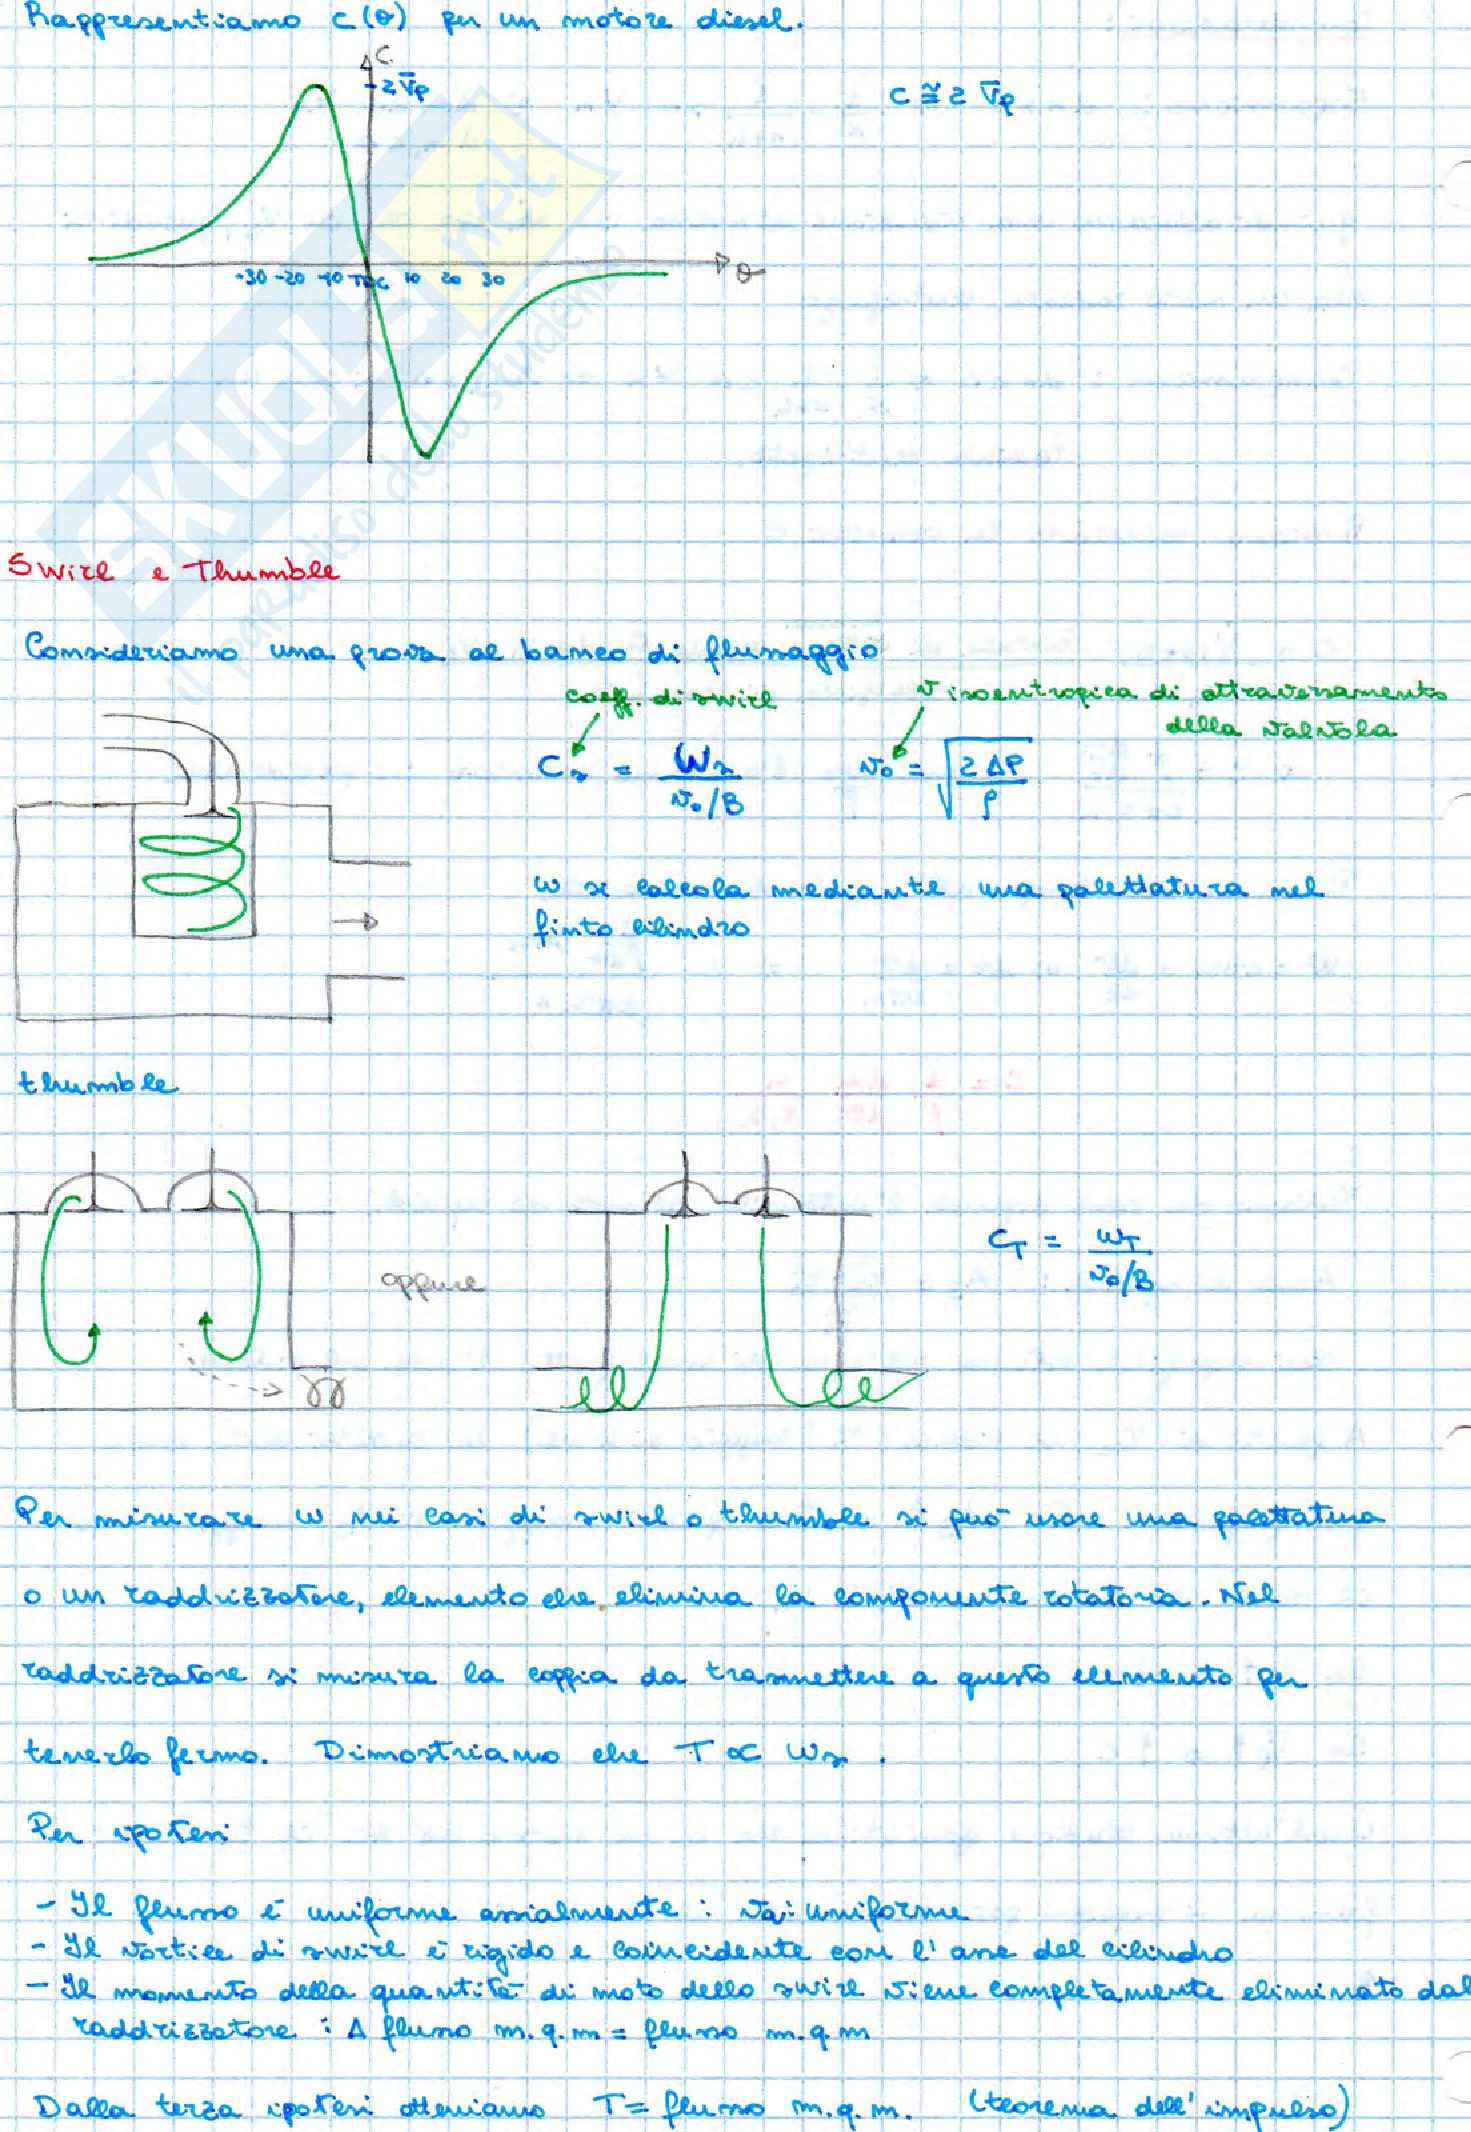 Rappresentiamo C(θ) per un motore diesel.
C
2 V̄p
C ≅ 2 V̄p
-30 -20 -10 TDC 10 20 30
θ
SKUOLA.net
il paradiso dello studente
Swirl e Thumble
Consideriamo una prova al banco di flussaggio
coeff. di swirl
v isoentropica di attraversamento
della valvola
Cs = ωs / (v0/B)
v0 = √(2 ΔP / ρ)
ω si calcola mediante una palettatura nel
finto cilindro
thumble
oppure
CT = ωT / (v0/B)
Per misurare ω nei casi di swirl o thumble si può usare una palettatura
o un raddrizzatore, elemento che elimina la componente rotatoria. Nel
raddrizzatore si misura la coppia da trasmettere a questo elemento per
tenerlo fermo. Dimostriamo che T ∝ ωs.
Per ipotesi
- Il flusso è uniforme assialmente : va: uniforme
- Il vortice di swirl è rigido e coincidente con l'asse del cilindro
- Il momento della quantità di moto dello swirl viene completamente eliminato dal
raddrizzatore : Δ flusso m.q.m = flusso m.q.m
Dalla terza ipotesi otteniamo T = flusso m.q.m. (teorema dell'impulso)